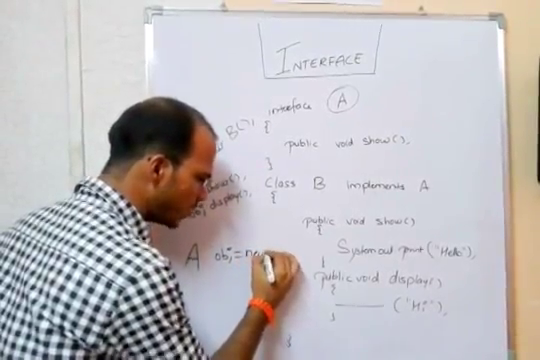 INTERFACE
interface A
{
public void show();
}
Class B implements A
{
public void show()
{
System out print ("Hello");
}
public void display()
{
("Hi");
}
}
B();
show();
display();
A obj=new